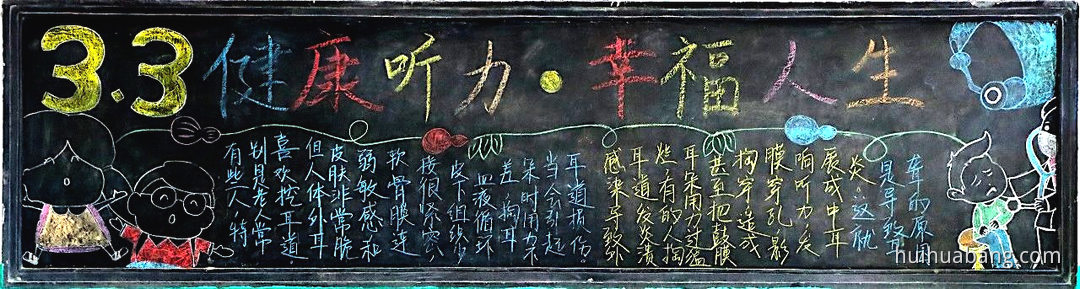 3.3健康听力·幸福人生
有些人特
别是老人常
喜欢挖耳道
但人体外耳
皮肤非常脆
弱敏感和
软骨膜连
接很紧密
皮下组织少
血液循环
差 掏耳
朵时用力不
当会引起
耳道损伤
感染导致外
耳道发炎溃
烂有的人掏
耳朵用力过猛
甚至把鼓膜
掏穿造成
膜穿孔影
响听力发
展成中耳
炎。这就
是导致耳
聋的原因
huihuabang.com